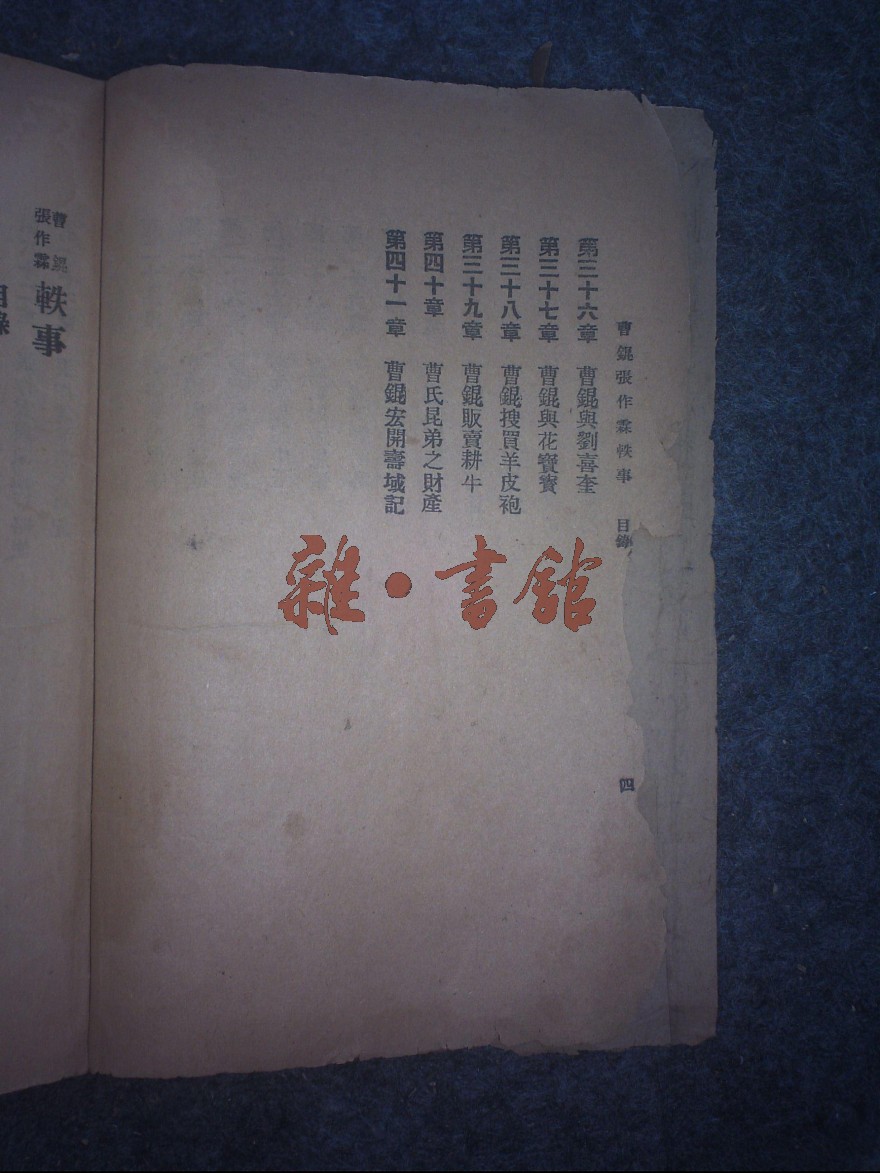 曹錕張作霖軼事 目錄 四
第三十六章 曹錕與劉喜奎
第三十七章 曹錕與花寶寶
第三十八章 曹錕搜買羊皮袍
第三十九章 曹錕販賣耕牛
第四十章 曹氏昆弟之財產
第四十一章 曹錕宏開壽域記
雜·書館
曹錕
張作霖
軼事
目錄